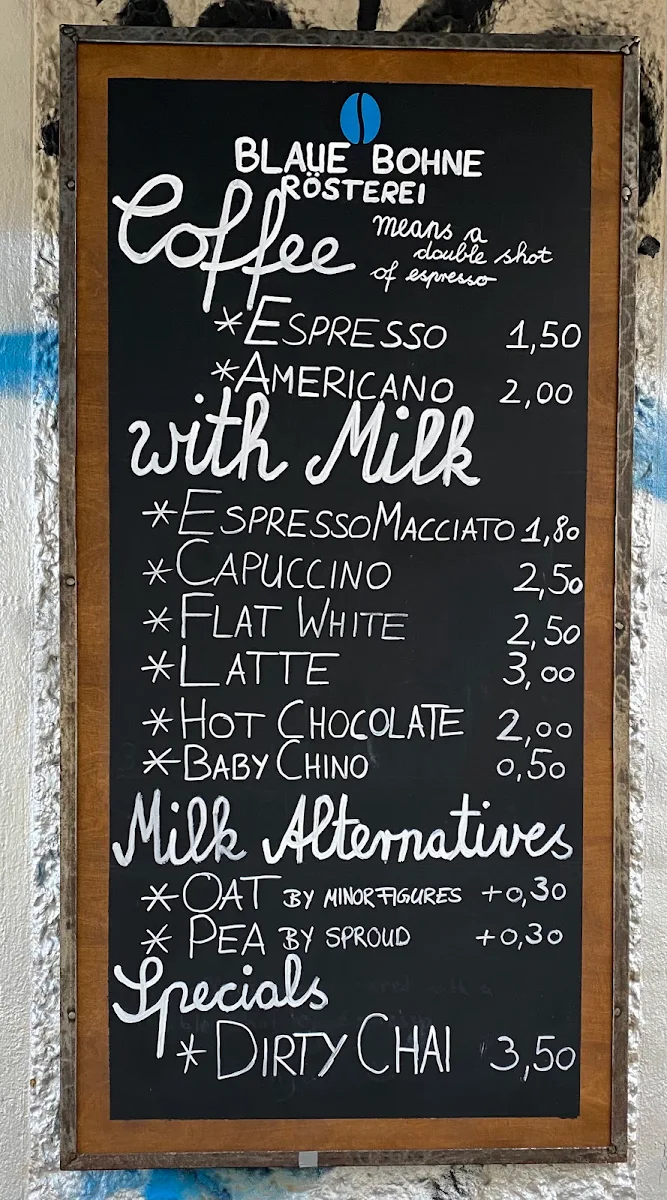 BLAUE BOHNE
RÖSTEREI
Coffee means a
double shot
of espresso
*ESPRESSO 1,50
*AMERICANO 2,00
with Milk
*ESPRESSOMACCIATO 1,80
*CAPUCCINO 2,50
*FLAT WHITE 2,50
*LATTE 3,00
*HOT CHOCOLATE 2,00
*BABY CHINO 0,50
Milk Alternatives
*OAT BY MINOR FIGURES +0,30
* PEA BY SPROUD +0,30
Specials
* DIRTY CHAI 3,50